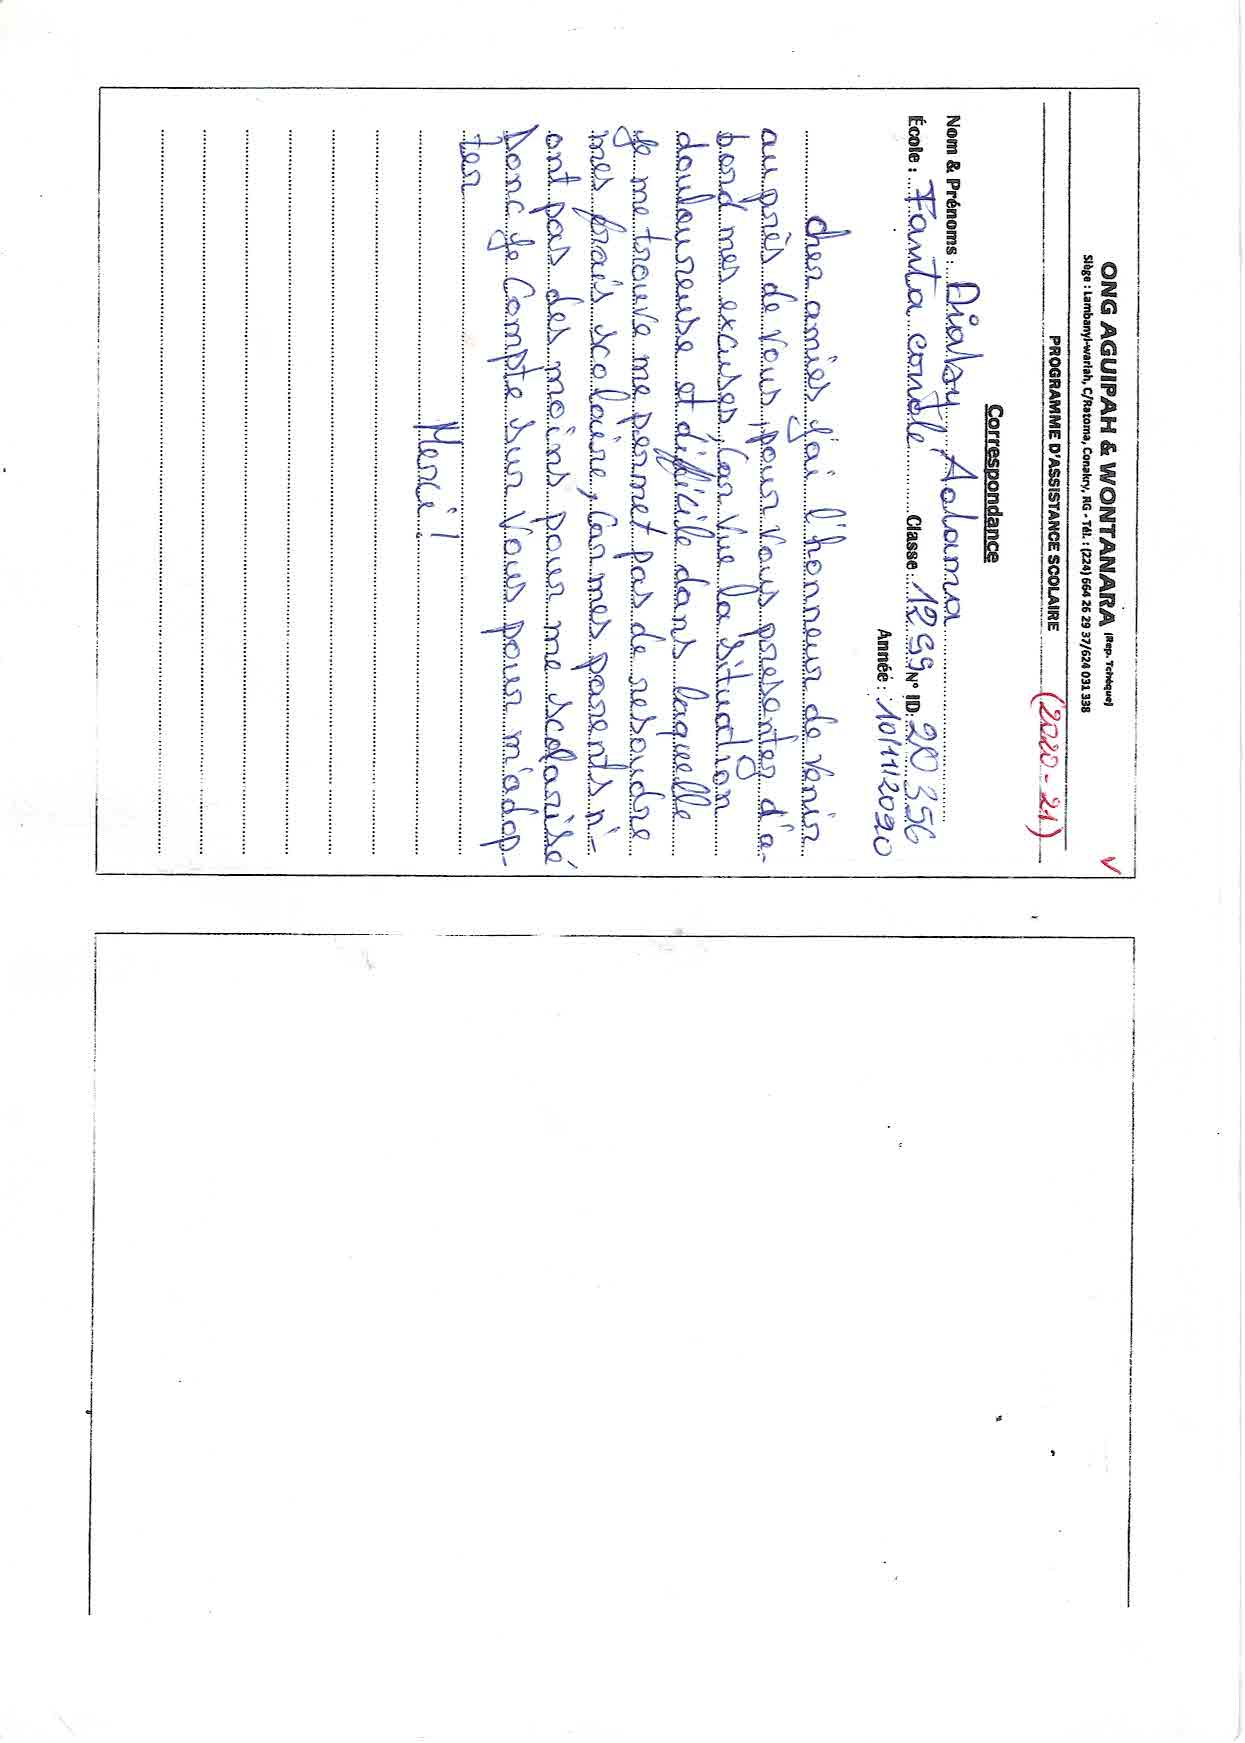 ONG AGUIPAH & WONTANARA (Rep. Tchèque)
Siège : Lambanyi-wariah, C/Ratoma, Conakry, RG - Tél. : (224) 664 26 29 37/624 031 338
PROGRAMME D'ASSISTANCE SCOLAIRE (2020-21)
Correspondance
Nom & Prénoms : Diaby, Adama
École : Fanta condé Classe : 12 SS N° ID: 20356
Année : 10/11/2020
cher amies j'ai l'honneur de venir
au près de vous, pour vous presenter d'a-
bord mes excuses, Car vue la situation
douloureuse et difficile dans laquelle
je me trouve me permet pas de resoudre
mes frais scolaire, Car mes parents n'-
ont pas des moins pour me scolarisé
Donc je Compte sur Vous pour m'adop-
ter
Merci!